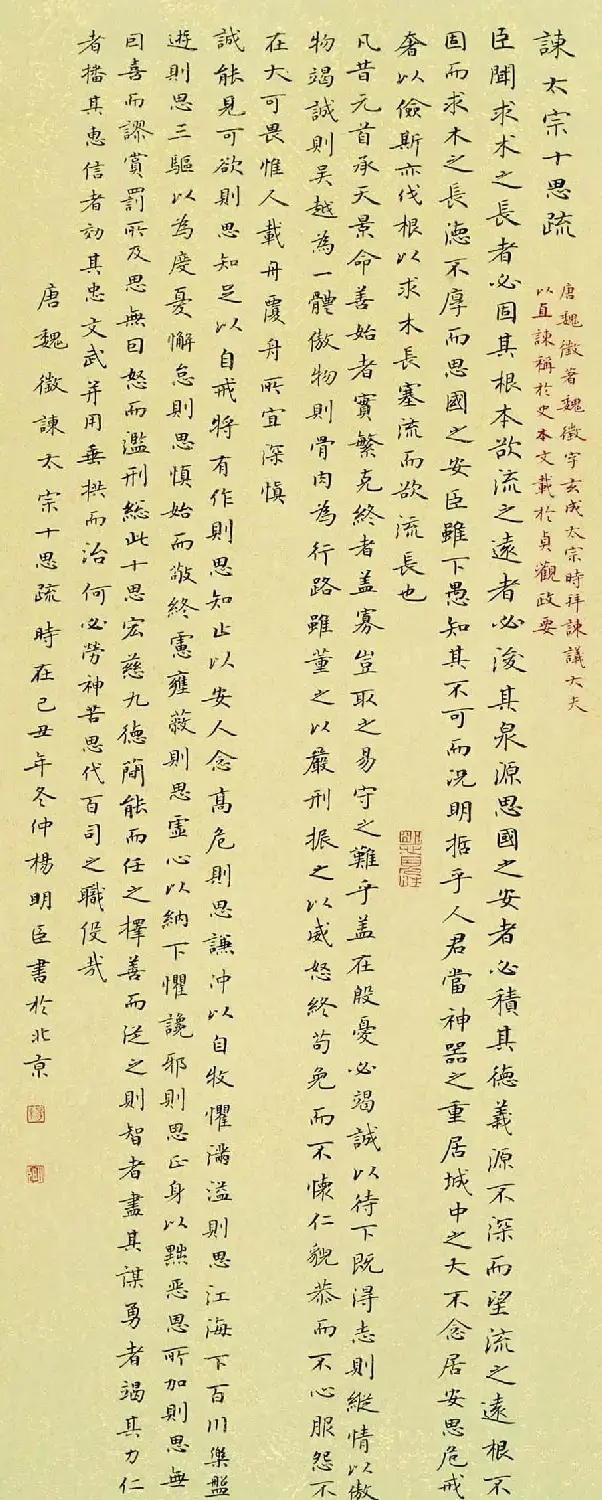 諫太宗十思疏
唐魏徵著魏徵字玄成太宗時拜諫議大夫
以直諫稱於史本文載於貞觀政要
臣聞求木之長者必固其根本欲流之遠者必浚其泉源思國之安者必積其德義源不深而望流之遠根不
固而求木之長德不厚而思國之安臣雖下愚知其不可而況明哲乎人君當神器之重居城中之大不念居安思危戒
奢以儉斯亦伐根以求木長塞流而欲流長也
凡昔元首承天景命善始者實繁克終者蓋寡豈取之易守之難乎蓋在殷憂必竭誠以待下既得志則縱情以傲
物竭誠則吴越為一體傲物則骨肉為行路雖董之以嚴刑振之以威怒終苟免而不懷仁貌恭而不心服怨不
在大可畏惟人載舟覆舟所宜深慎
誠能見可欲則思知足以自戒將有作則思知止以安人念高危則思謙沖以自牧懼滿溢則思江海下百川樂盤
遊則思三驅以為度憂懈怠則思慎始而敬終慮壅蔽則思虛心以納下懼讒邪則思正身以黜惡恩所加則思無
因喜而謬賞罰所及思無因怒而濫刑總此十思宏慈九德簡能而任之擇善而從之則智者盡其謀勇者竭其力仁
者播其惠信者効其忠文武并用垂拱而治何必勞神苦思代百司之職役哉
唐魏徵諫太宗十思疏時在己丑年冬仲楊明臣書於北京